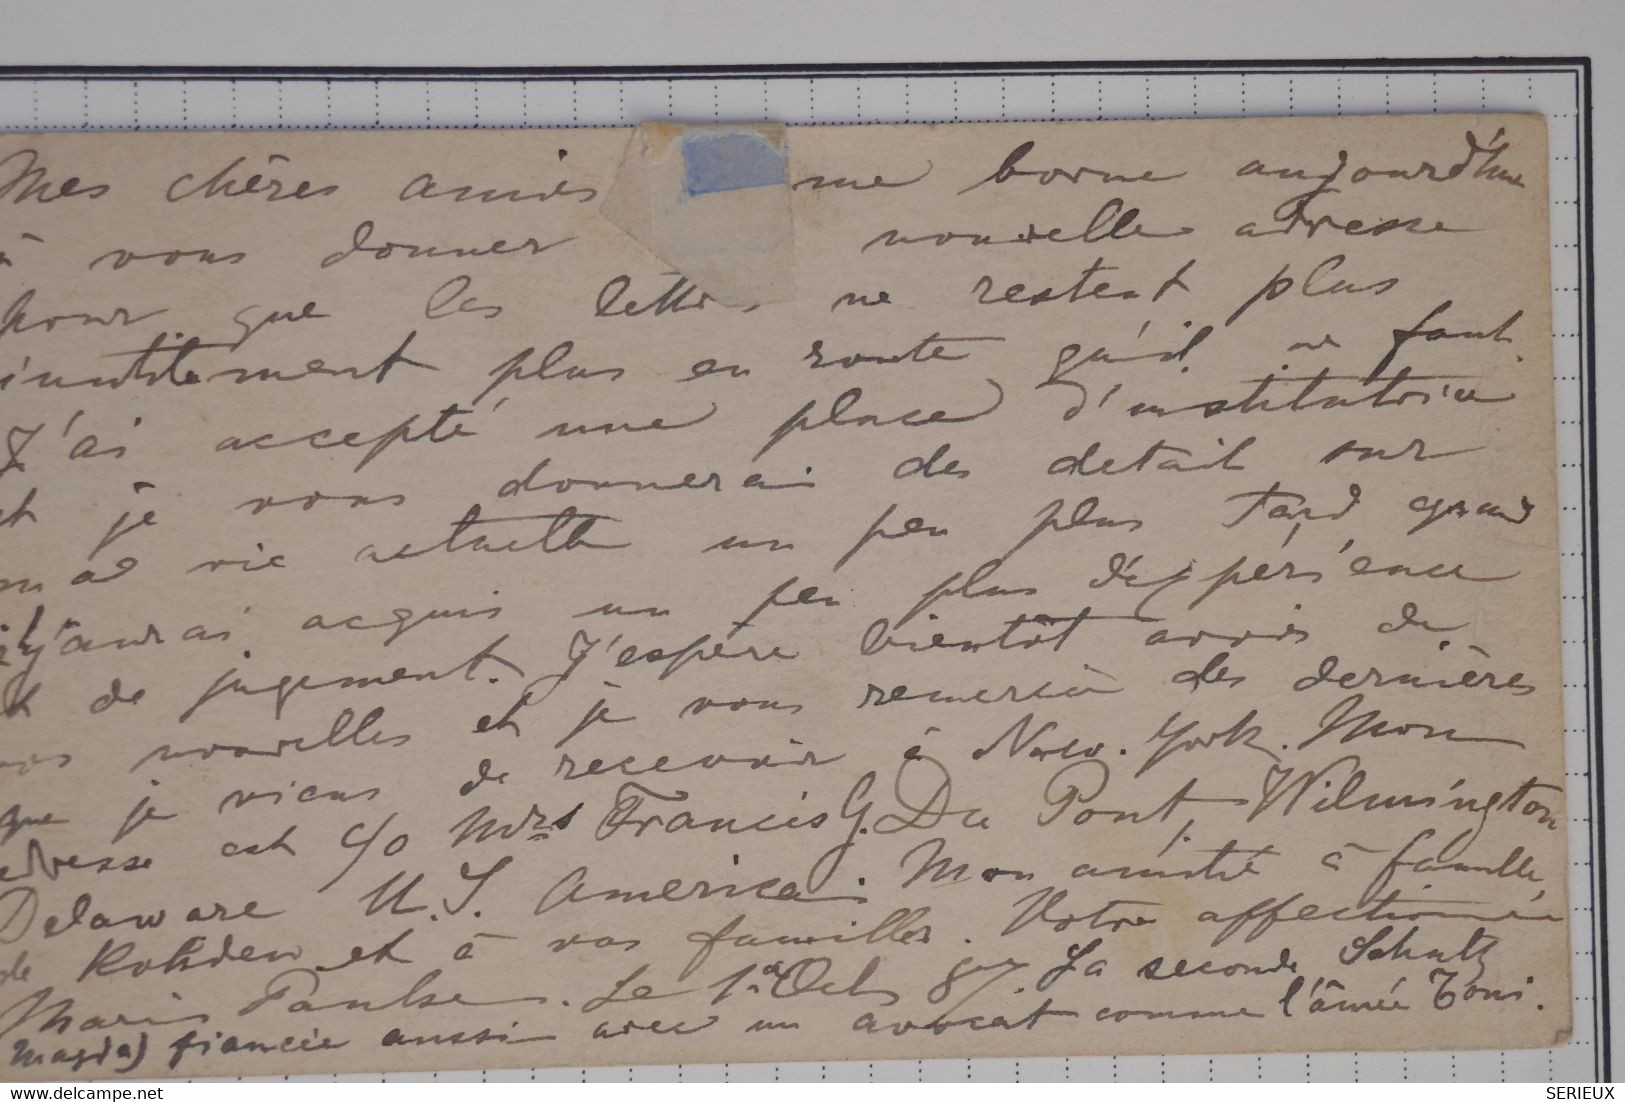 Mes chères amies me borne aujourd'hui
à vous donner nouvelle adresse
pour que les lettres ne restent plus
inutilement plus en route qu'il ne faut.
J'ai accepté une place d'institutrice
et je vous donnerai des detail sur
ma vie actuelle un peu plus tard quand
j'aurai acquis un peu plus d'expérience
et de jugement. J'espère bientôt avoir de
vos nouvelles et je vous remercie des dernières
que je viens de recevoir à New-York. Mon
adresse est c/o Mrs Francis G. Du Pont, Wilmington
Delaware U.S. America. Mon amitié à famille
de Rohden et à vos familles. Votre affectionnée
Marie Paulsen. Le 1 Oct 87. La seconde Schultz
Magda) fiancée aussi avec un avocat comme l'aînée Toni.
delcampe.net
SERIEUX